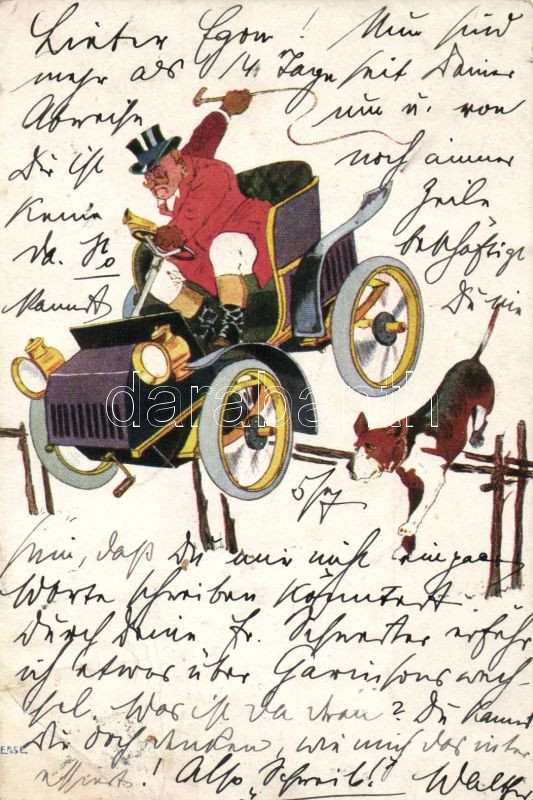 Lieber Egon! Nun sind
mehr als 14 Tage seit Deiner
Abreise um u. von
Dir ist noch immer
keine Zeile
da. So beschäftigt
kannst Du nie
5/7
sein, daß Du mir nicht ein paar
Worte schreiben könntest.
Durch Deine Fr. Schwester erfuhr
ich etwas über Garnisonswech-
sel. Was ist da dran? Du kannst
Dir doch denken, wie mich das inter-
essiert! Also „Schreib!" Walther
darabanth